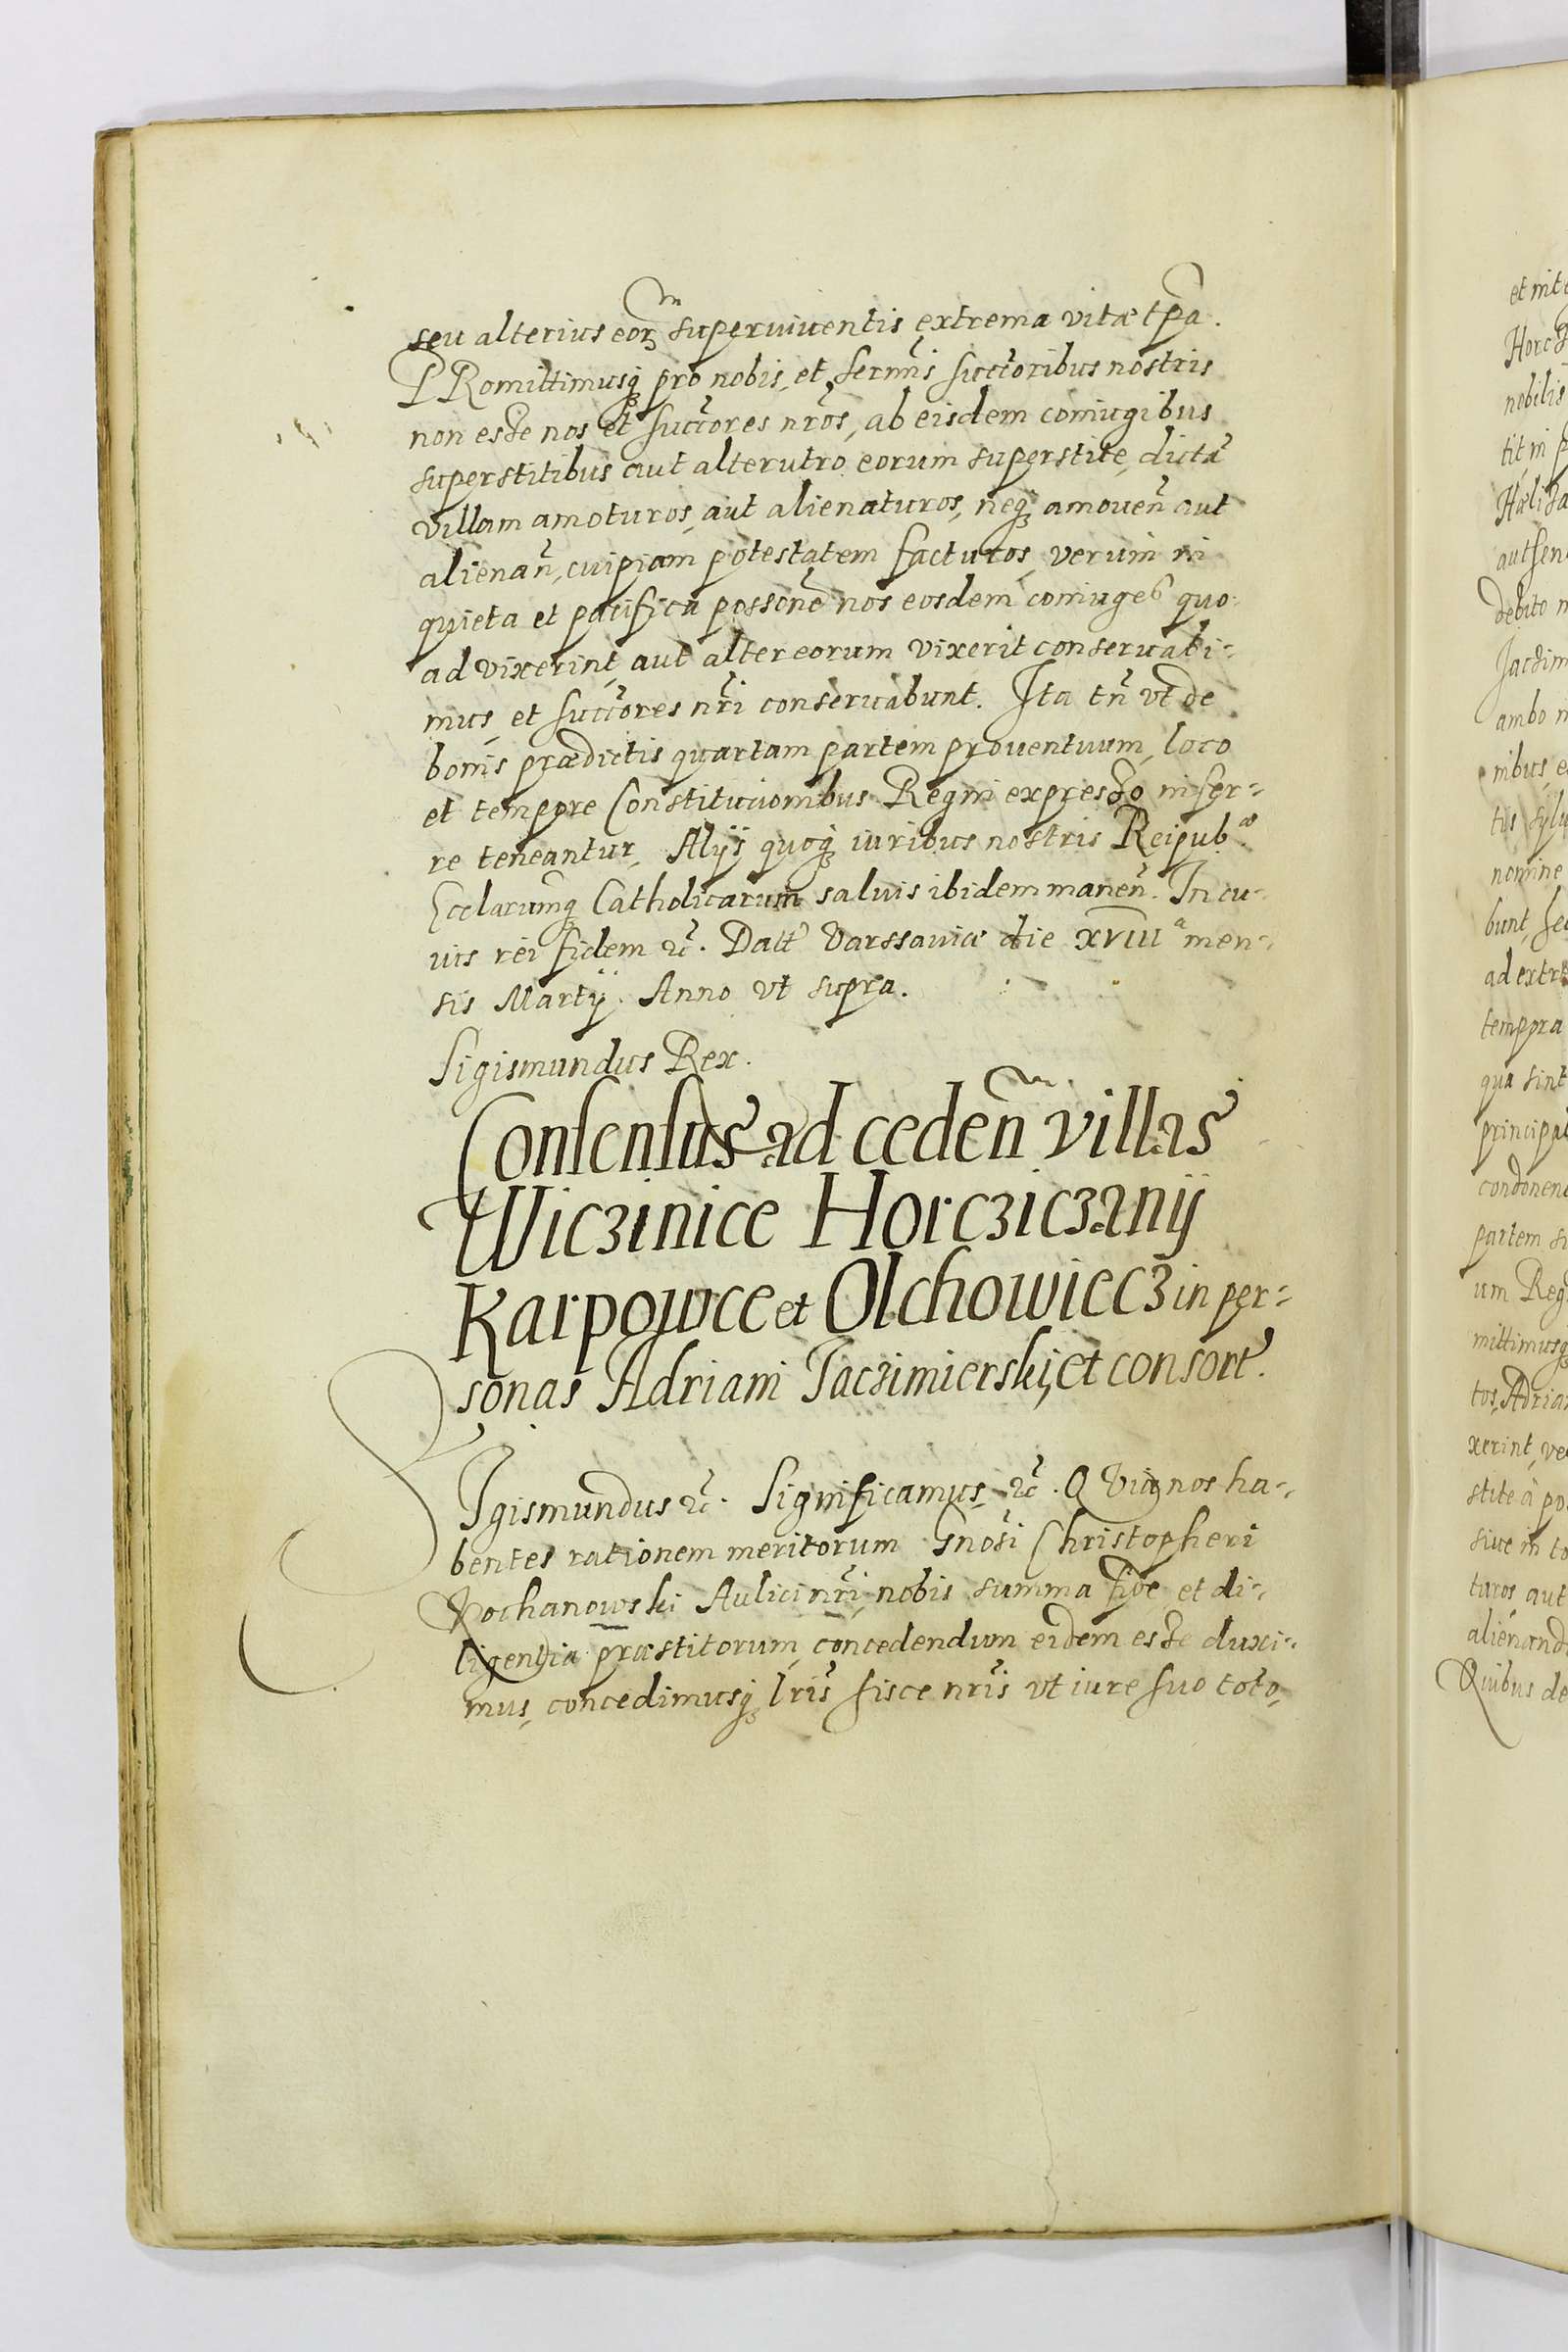 seu alterius eorꝫ superviventis extrema vitæ tp̃a.
PRomittimusqꝫ pro nobis, et sermĩs succ̃toribus nostris
non esse nos et succ̃ores nr̃os, ab eisdem coniugibus
superstitibus aut alterutro eorum superstite, dictã
villam amoturos, aut alienaturos, neqꝫ amouen̄ aut
alienan̄, cuipiam potestatem facturos, verum in
quieta et pacifica possonẽ nos eosdem coniuges quo
ad vixerint, aut alter eorum vixerit conseruabi-
mus, et succ̃ores nr̃i conseruabunt. Ita tñ vt de
bonis prædictis quartam partem prouentuum, loco
et tempore Constitutionibus Regni expresso infer-
re teneantur, Alijs quoqꝫ iuribus nostris Reipub.æ
Ecclarumqꝫ Catholicarum saluis ibidem manen̄. In cu-
ius rei fidem ꝛc̃. Datt̃ Varssauiæ die XVIIIa men-
sis Martij. Anno vt supra.
Sigismundus Rex.
Consensus ad ceden̄ villas
Wiczinice Horcziczanij
Karpowce et Olchowiecz in per-
sonas Adriani Jaczimierskij, et consort̃.
SIgismundus ꝛc̃. Significamus, ꝛc̃. QVia nos ha-
bentes rationem meritorum Gnosĩ Christopheri
Kochanowski Aulici nr̃i, nobis summa fide, et di-
ligentia præstitorum, concedendum eidem esse duxi-
mus, concedimusqꝫ lr̃is hisce nr̃is vt iure suo toto,
et int
Horcz
nobilis
tit, in p
Hæliza
aut sen
debito n
Jaczim
ambo n
nibus, e
tis sylu
nomine
bunt, se
ad extre
temppra
qua sint
principa
condonen
partem s
um Reg
mittimusqꝫ
tos, Adria
xerint, ve
stite à po
siue in to
turos aut
alienand
Quibus de